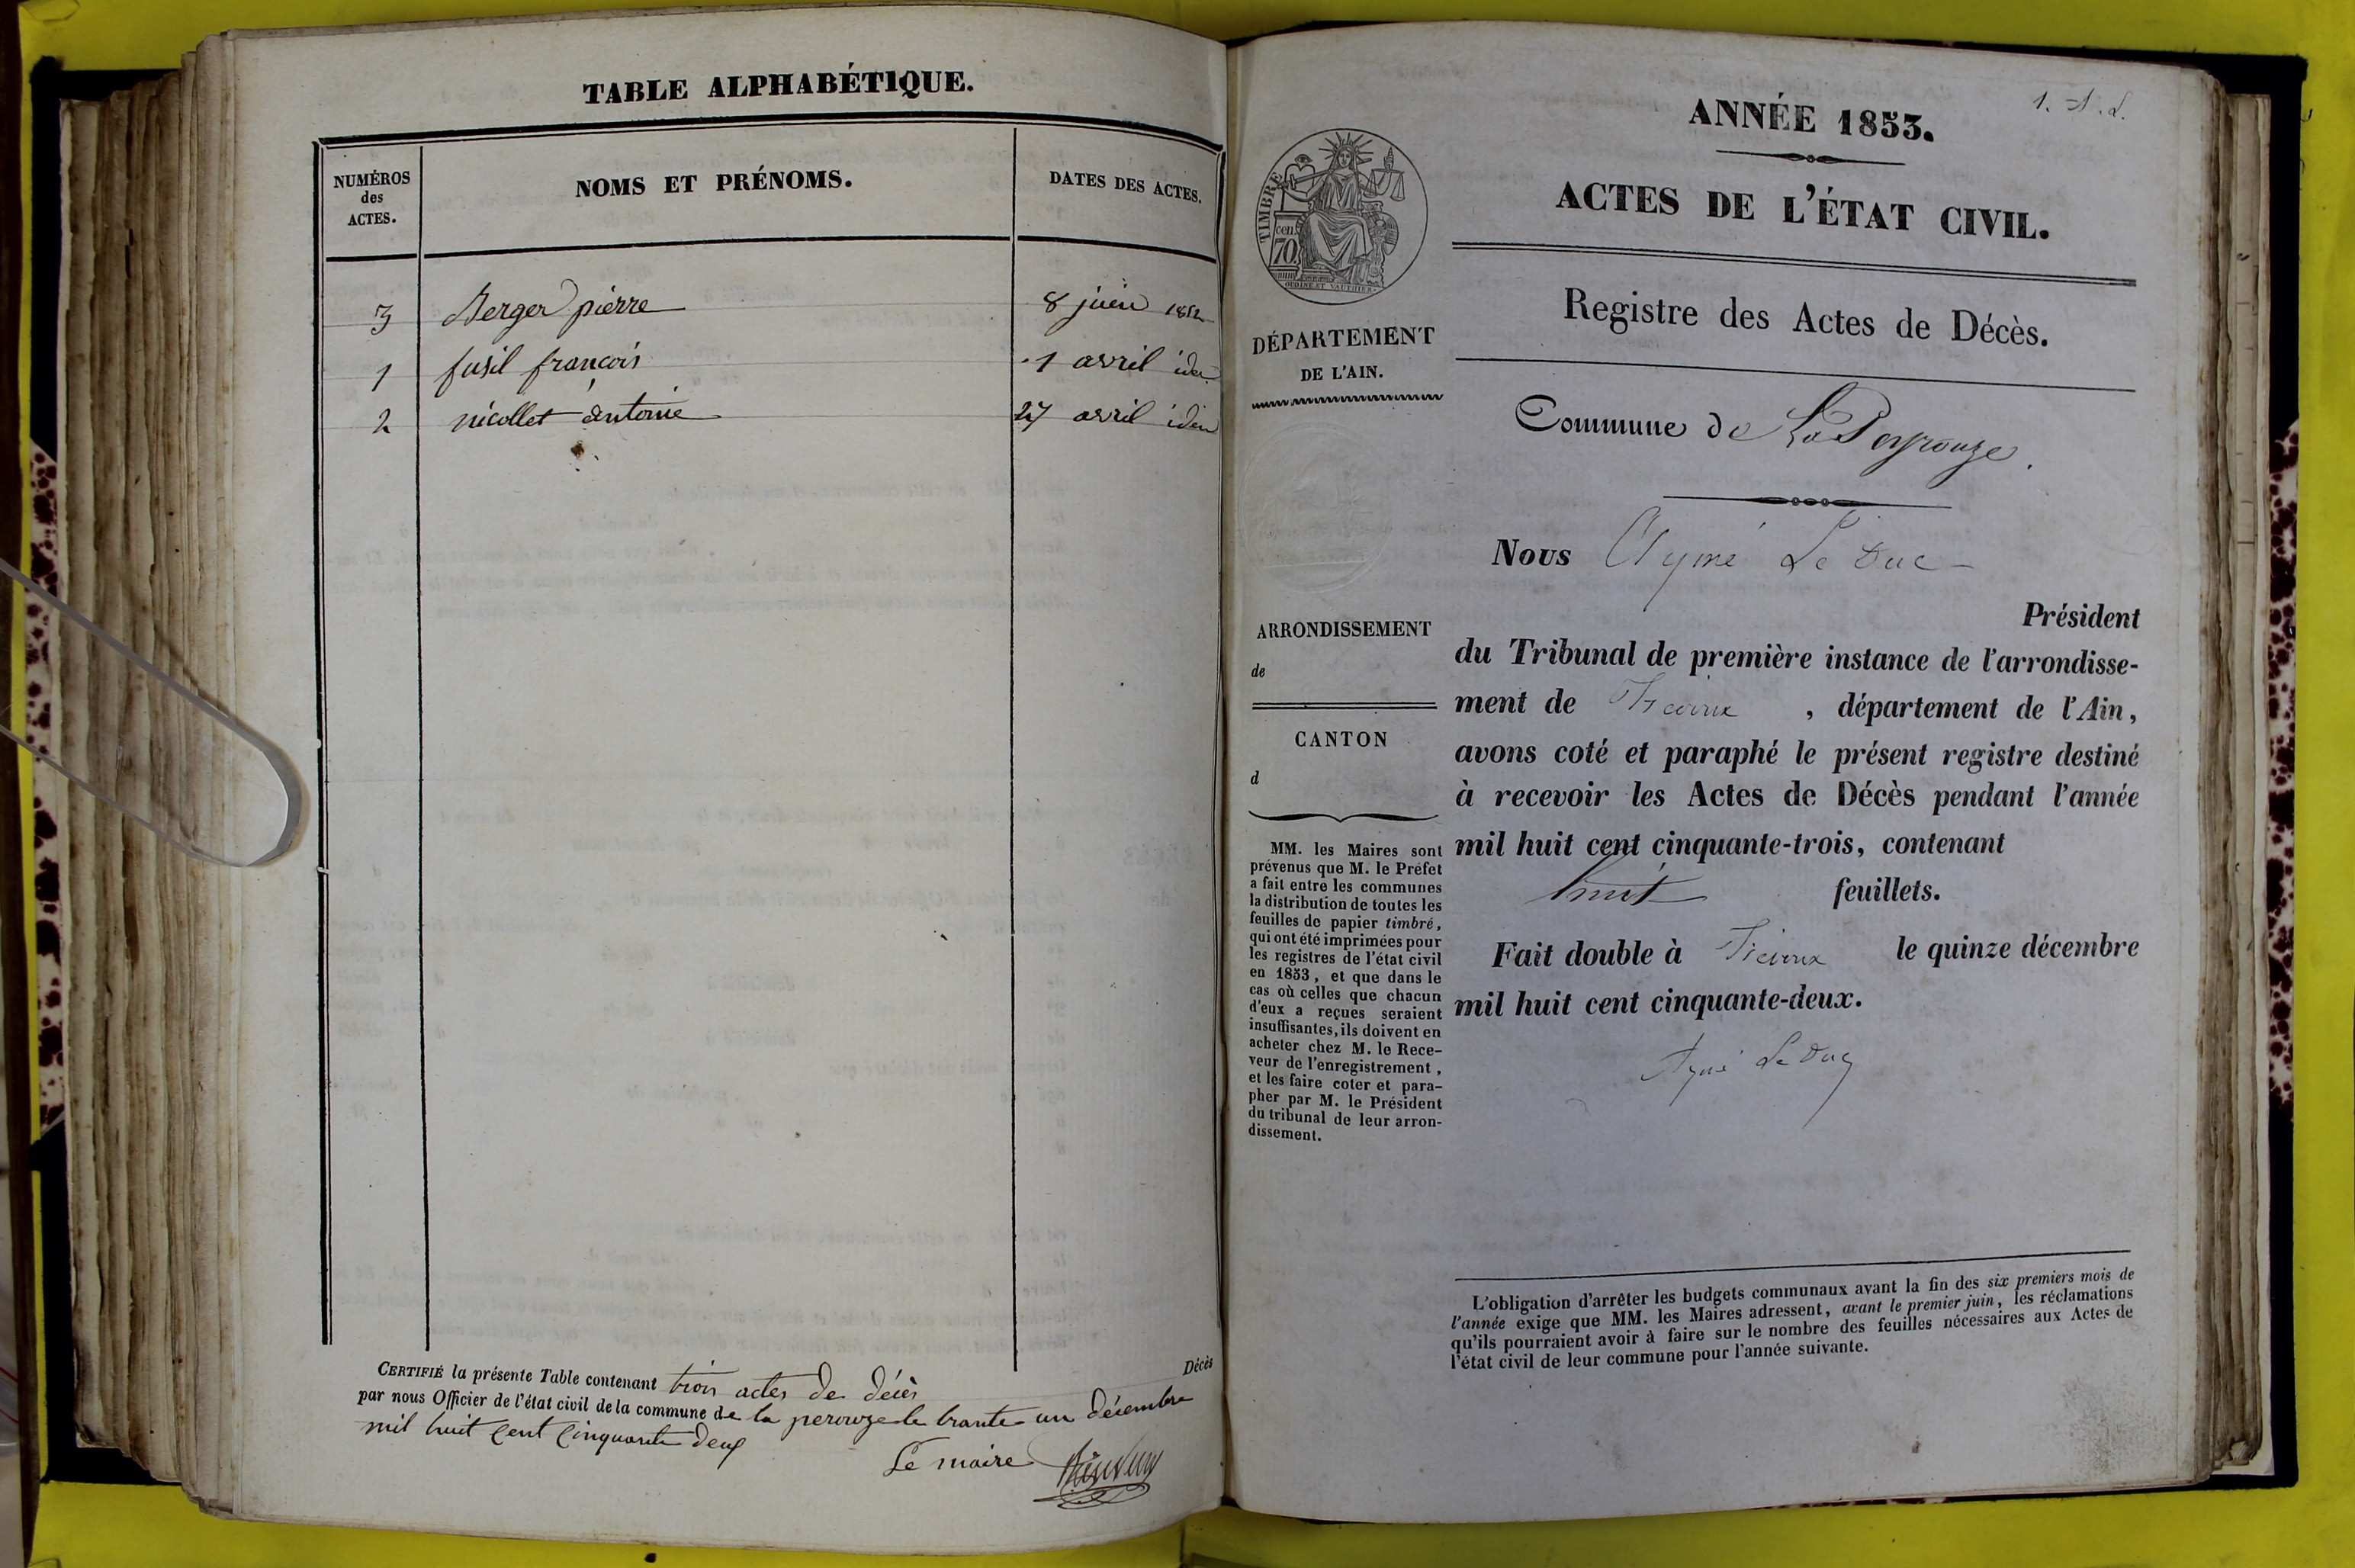 TABLE ALPHABÉTIQUE.
NUMÉROS
des
ACTES.
NOMS ET PRÉNOMS.
DATES DES ACTES.
3 Berger pierre 8 juin 1852
1 fusil francois 1 avril idem
2 nicollet antoine 27 avril idem
CERTIFIÉ la présente Table contenant trois actes de décès Décès
par nous Officier de l'état civil de la commune de la perouze le trante un décembre
mil huit cent cinquante deux
Le maire
ANNÉE 1853.
ACTES DE L'ÉTAT CIVIL.
Registre des Actes de Décès.
Commune de La Peyrouze.
TIMBRE
cen.
70
DÉPARTEMENT
DE L'AIN.
ARRONDISSEMENT
de
CANTON
d
MM. les Maires sont
prévenus que M. le Préfet
a fait entre les communes
la distribution de toutes les
feuilles de papier timbré,
qui ont été imprimées pour
les registres de l'état civil
en 1853, et que dans le
cas où celles que chacun
d'eux a reçues seraient
insuffisantes, ils doivent en
acheter chez M. le Rece-
veur de l'enregistrement,
et les faire coter et para-
pher par M. le Président
du tribunal de leur arron-
dissement.
Nous Aymé Le Duc
Président
du Tribunal de première instance de l'arrondisse-
ment de Trévoux, département de l'Ain,
avons coté et paraphé le présent registre destiné
à recevoir les Actes de Décès pendant l'année
mil huit cent cinquante-trois, contenant
huit feuillets.
Fait double à Trévoux le quinze décembre
mil huit cent cinquante-deux.
Aymé Le Duc
L'obligation d'arrêter les budgets communaux avant la fin des six premiers mois de
l'année exige que MM. les Maires adressent, avant le premier juin, les réclamations
qu'ils pourraient avoir à faire sur le nombre des feuilles nécessaires aux Actes de
l'état civil de leur commune pour l'année suivante.